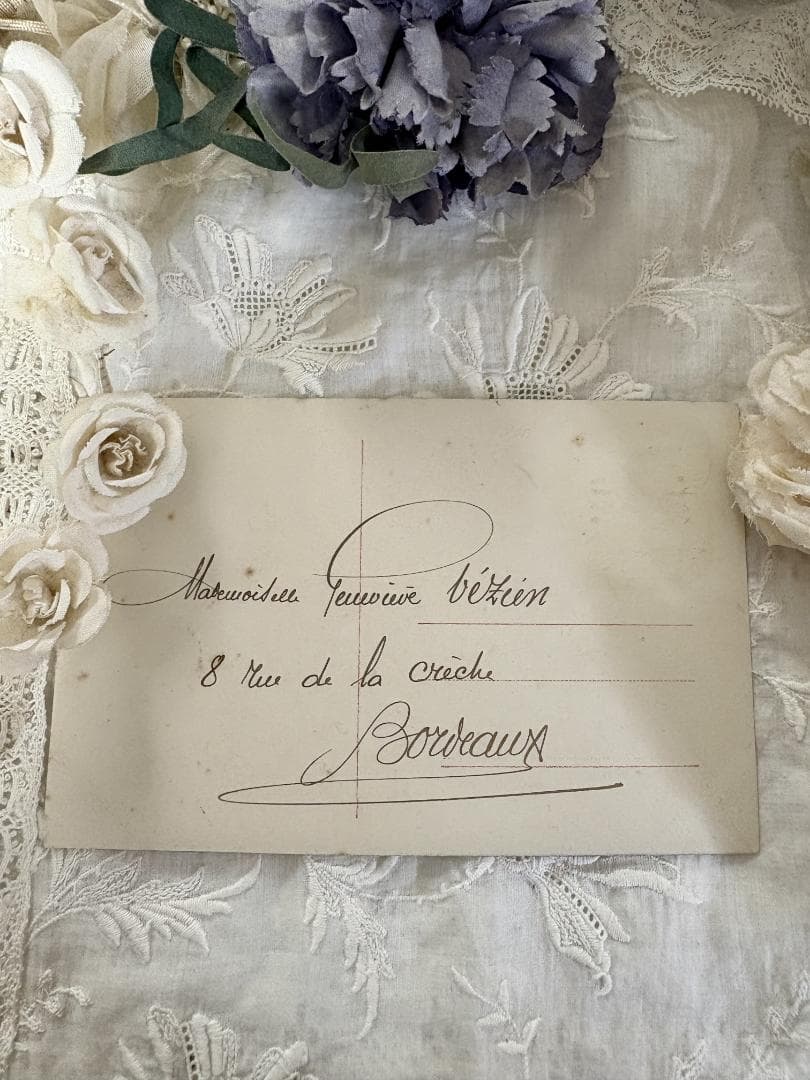 Mademoiselle Geneviève Vézien
8 rue de la crèche
Bordeaux